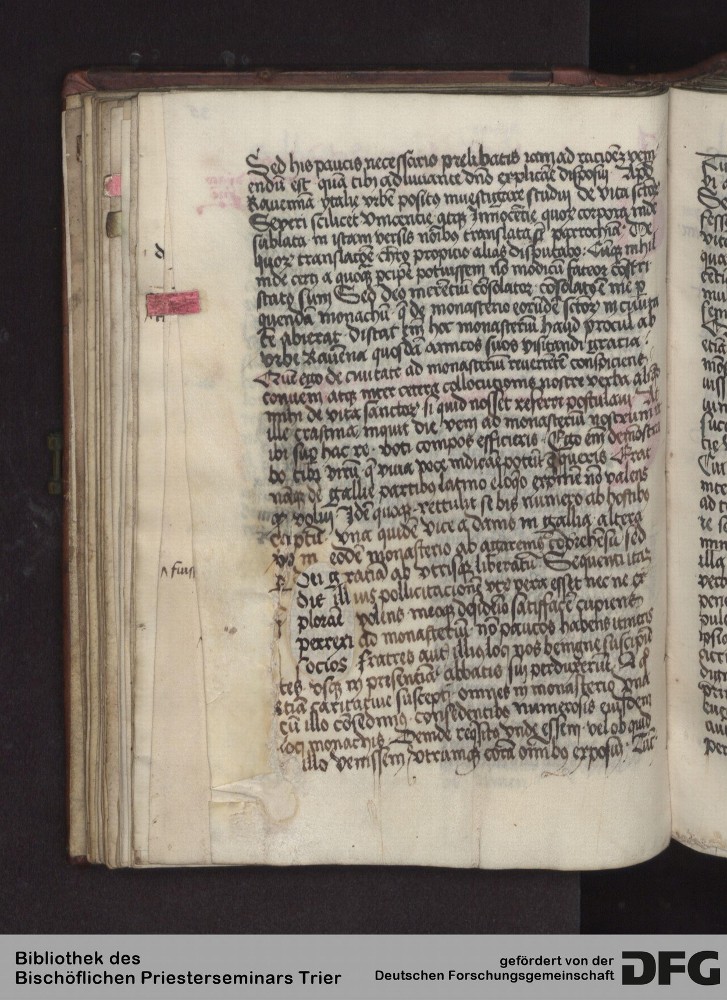 Sed his paucis necessariis prelibatis iam ad racionẽ veni
endũ est quã tibi adiuuante dño explicare disposui Apd
Rauennã ytalie vrbẽ posito inuestigare studui de vita sctor
Seueri scilicet vincentie atqȝ Innocẽtie quoȝ corpora inde
sublata in istam versis nobis translata st parrochiã De
quoȝ translatõe chro propicio alias disputabo Cũqȝ nihil
inde certi a quoqȝ pcipe potuissem nõ modicũ fateor cõstri
status sum Sed deo merentiũ cõsolator cõsolatõem me p
quendã monachũ q de monasterio eorũdẽ sctor in ciuita
tẽ abierat distat em hoc monasteriũ haud procul ab
vrbe Rauenna quosdã amicos suos visitandi gracia
Quẽ ego de ciuitate ad monasteriũ reuertentẽ conspiciens
conueni atqȝ inter cetera collocutionis nostre verba aliqȝ
mihi de vita sanctoȝ si quid nosset referri postulaui At
ille crastina inquit die veni ad monasteriũ nostrum
ibi sup hac re voti compos efficieris Ego em demõstra
bo tibi virũ q viua voce indicare poterit que queris Erat
naqȝ de gallie partibus latino eloqio nõ valens
volui Idẽ quoqȝ rettulit se bis numero ab hostibȝ
captũ vna quidẽ vice a danis in gallia altera
vo in eodẽ monasterio ab agarenis cõprehensũ sed
p dei gratiã ab vtrisqȝ liberatũ Sequenti itaqȝ
die illius pollicitacionẽ vtr vera esset nec ne ex
plorare volens meoqȝ desiderio satisfacere cupiens
perrexi ad monasteriũ nõ paucos habens itineris
socios Fratres aut illius loci nos benigne suscipiẽ
tes vsqȝ in presentiã abbatis sui perduxerũt A q
etiã caritatiue suscepti omnes in monasterio vna
cũ illo cõsedimus considentibȝ numerosis eiusdem
loci monachis Deinde reqsitus vnde essem vel ob quid
illo venissem vtrumqȝ corã omibȝ exposui Tũc
^ fuisse
Bibliothek des
Bischöflichen Priesterseminars Trier
gefördert von der
Deutschen Forschungsgemeinschaft
DFG